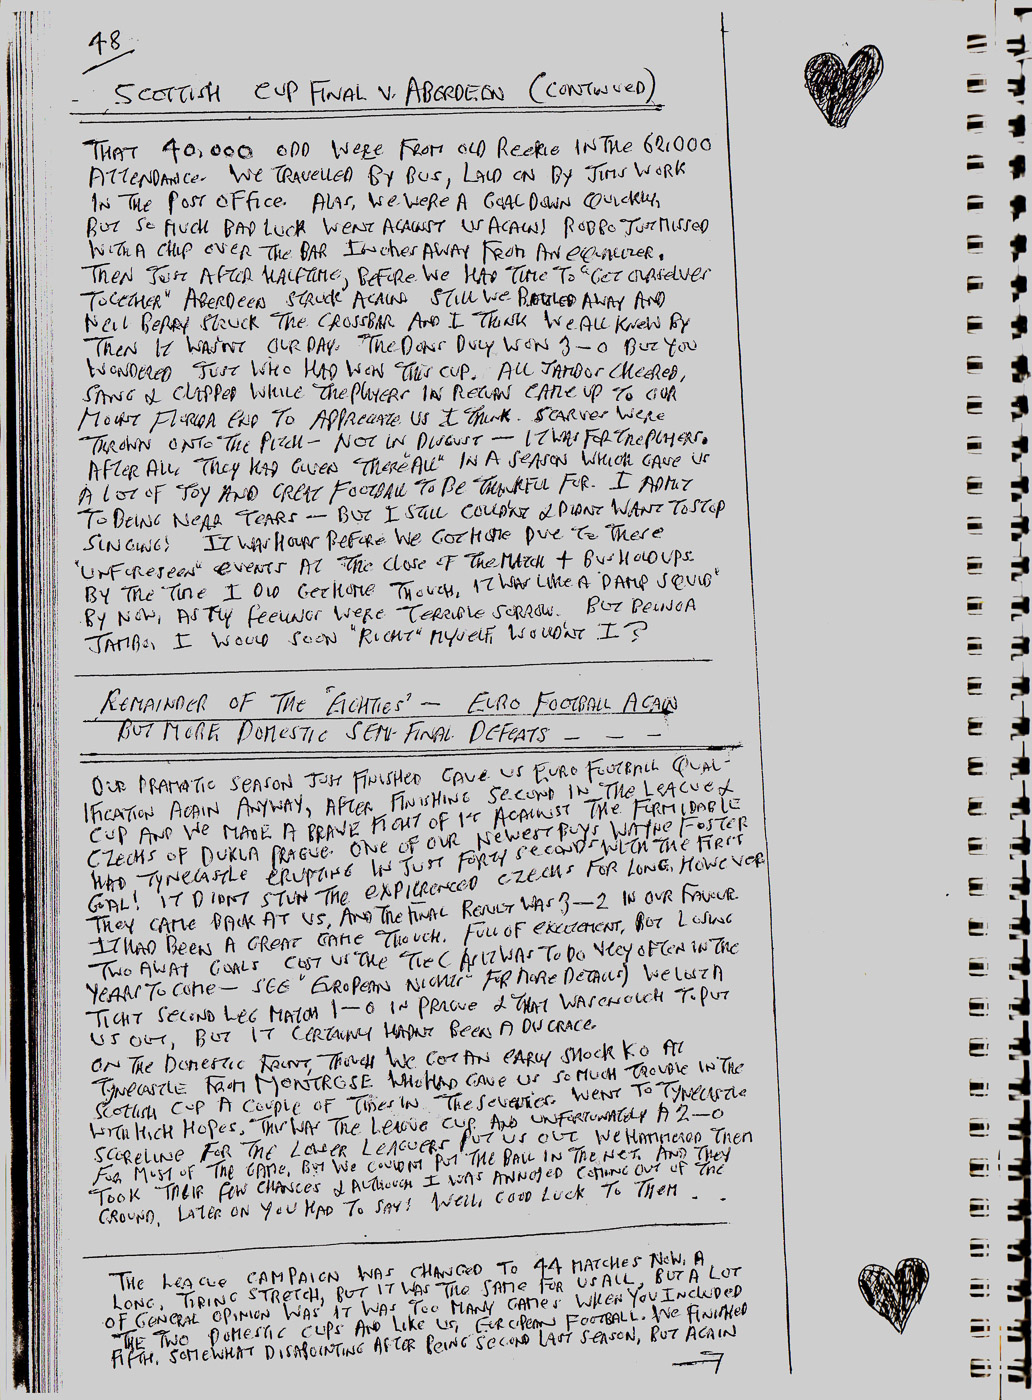 48
SCOTTISH CUP FINAL V. ABERDEEN (CONTINUED)
THAT 40,000 ODD WERE FROM OLD REEKIE IN THE 62,000
ATTENDANCE. WE TRAVELLED BY BUS, LAID ON BY JIMS WORK
IN THE POST OFFICE. ALAS, WE WERE A GOAL DOWN QUICKLY,
BUT SO MUCH BAD LUCK WENT AGAINST US AGAIN! ROBBO JUST MISSED
WITH A CHIP OVER THE BAR INCHES AWAY FROM AN EQUALIZER.
THEN JUST AFTER HALFTIME, BEFORE WE HAD TIME TO "GET OURSELVES
TOGETHER" ABERDEEN STRUCK AGAIN. STILL WE BATTLED AWAY AND
NEIL BERRY STRUCK THE CROSSBAR AND I THINK WE ALL KNEW BY
THEN IT WASNT OUR DAY. THE DONS DULY WON 3-0 BUT YOU
WONDERED JUST WHO HAD WON THIS CUP. ALL JAMBOS CHEERED,
SANG & CLAPPED WHILE THE PLAYERS IN RETURN CAME UP TO OUR
MOUNT FLORIDA END TO APPRECIATE US I THINK. SCARVES WERE
THROWN ONTO THE PITCH - NOT IN DISGUST - IT WAS FOR THE PLAYERS.
AFTER ALL THEY HAD GIVEN THERE "ALL" IN A SEASON WHICH GAVE US
A LOT OF JOY AND GREAT FOOTBALL TO BE THANKFUL FOR. I ADMIT
TO BEING NEAR TEARS - BUT I STILL COULDNT & DIDNT WANT TO STOP
SINGING! IT WAS HOURS BEFORE WE GOT HOME DUE TO THESE
"UNFORESEEN" EVENTS AT THE CLOSE OF THE MATCH + BUS HOLDUPS.
BY THE TIME I DID GET HOME THOUGH, IT WAS LIKE A "DAMP SQUIB"
BY NOW, AS MY FEELINGS WERE TERRIBLE SORROW. BUT BEING A
JAMBO, I WOULD SOON "RIGHT" MYSELF, WOULDNT I?
REMAINDER OF THE "EIGHTIES" - EURO FOOTBALL AGAIN
BUT MORE DOMESTIC SEMI-FINAL DEFEATS - - -
OUR DRAMATIC SEASON JUST FINISHED GAVE US EURO FOOTBALL QUAL-
IFICATION AGAIN ANYWAY, AFTER FINISHING SECOND IN THE LEAGUE &
CUP AND WE MADE A BRAVE FIGHT OF IT AGAINST THE FORMIDABLE
CZECHS OF DUKLA PRAGUE. ONE OF OUR NEWEST BUYS WAYNE FOSTER
HAD TYNECASTLE ERUPTING IN JUST FORTY SECONDS WITH THE FIRST
GOAL! IT DIDNT STUN THE EXPIERENCED CZECHS FOR LONG, HOWEVER
THEY CAME BACK AT US, AND THE FINAL RESULT WAS 3-2 IN OUR FAVOUR.
IT HAD BEEN A GREAT GAME THOUGH. FULL OF EXCITEMENT, BUT LOSING
TWO AWAY GOALS COST US THE TIE (AS IT WAS TO DO VERY OFTEN IN THE
YEARS TO COME - SEE "EUROPEAN NIGHTS" FOR MORE DETAILS) WE LOST A
TIGHT SECOND LEG MATCH 1-0 IN PRAGUE & THAT WAS ENOUGH TO PUT
US OUT, BUT IT CERTAINLY HADNT BEEN A DISGRACE.
ON THE DOMESTIC FRONT, THOUGH WE GOT AN EARLY SHOCK K.O AT
TYNECASTLE FROM MONTROSE WHO HAD GAVE US SO MUCH TROUBLE IN THE
SCOTTISH CUP A COUPLE OF TIMES IN THE SEVENTIES. WENT TO TYNECASTLE
WITH HIGH HOPES, THIS WAS THE LEAGUE CUP AND UNFORTUNATELY A 2-0
SCORELINE FOR THE LOWER LEAGUERS PUT US OUT. WE HAMMERED THEM
FOR MOST OF THE GAME, BUT WE COULDNT PUT THE BALL IN THE NET, AND THEY
TOOK THEIR FEW CHANCES & ALTHOUGH I WAS ANNOYED COMING OUT OF THE
GROUND, LATER ON YOU HAD TO SAY! WELL, GOOD LUCK TO THEM . .
THE LEAGUE CAMPAIGN WAS CHANGED TO 44 MATCHES NOW, A
LONG, TIRING STRETCH, BUT IT WAS THE SAME FOR US ALL, BUT A LOT
OF GENERAL OPINION WAS IT WAS TOO MANY GAMES WHEN YOU INCLUDED
THE TWO DOMESTIC CUPS AND LIKE US, EUROPEAN FOOTBALL. WE FINISHED
FIFTH, SOMEWHAT DISAPOINTING AFTER BEING SECOND LAST SEASON, BUT AGAIN